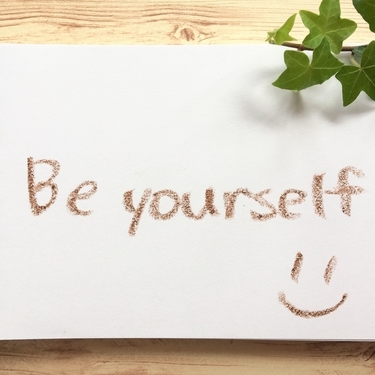 Be yourself